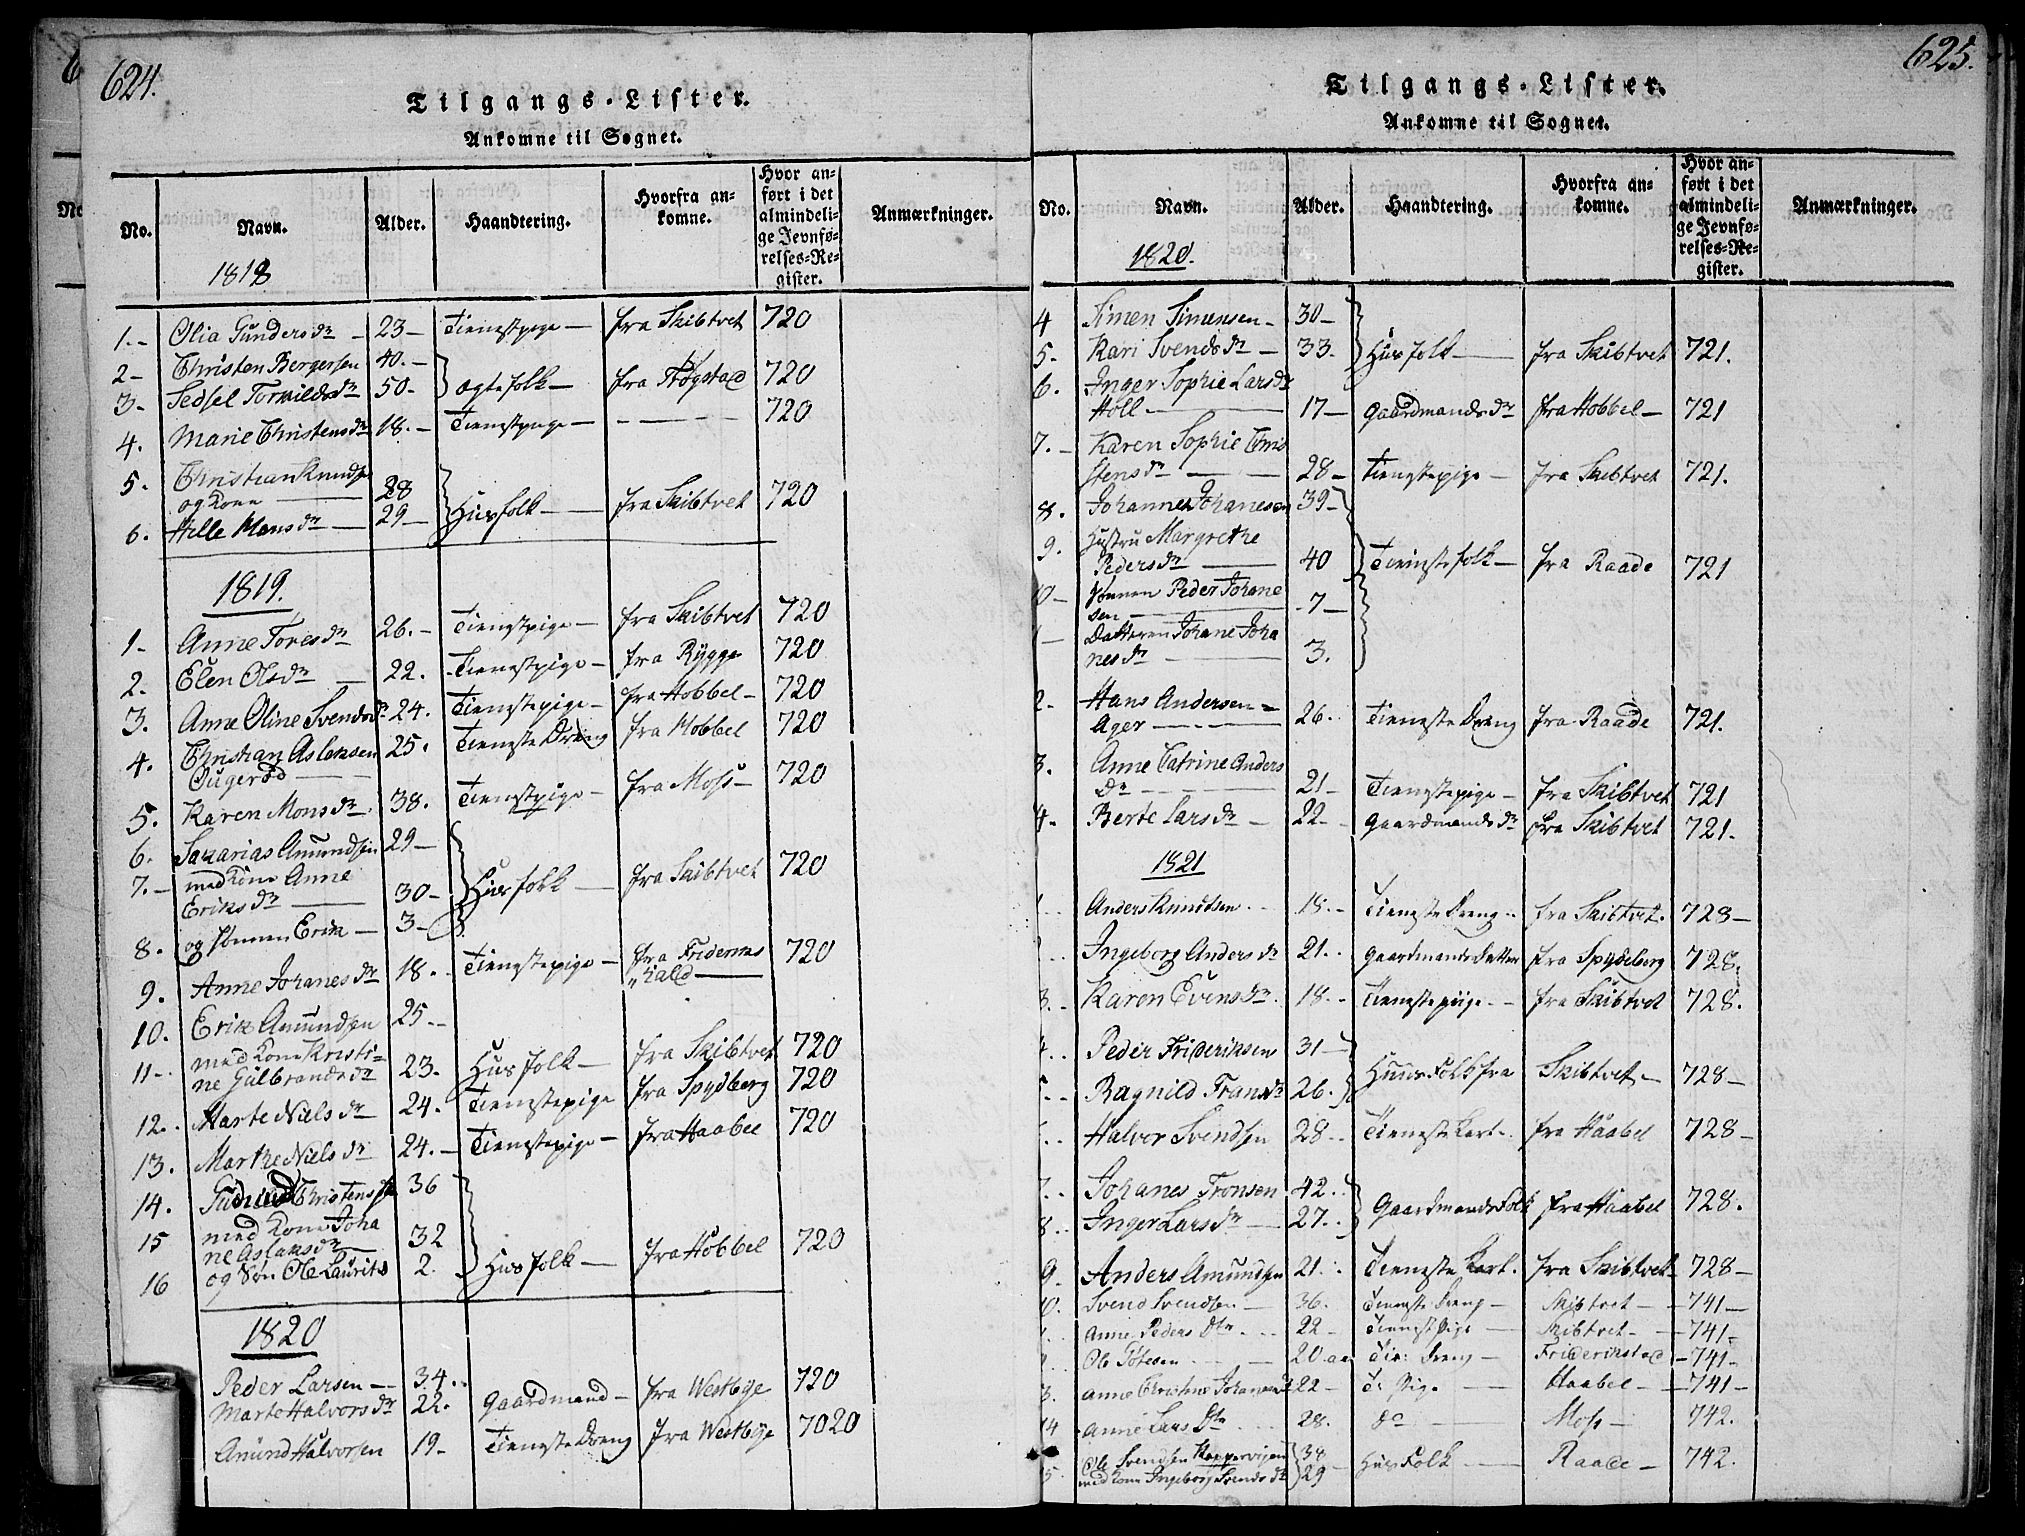 624.
Tilgangs-Lister.
Ankomne til Sognet.
No. Navn. Alder. Haandtering. Hvorfra ankomne. Hvor anført i det almindelige Jevnførelses-Register. Anmærkninger.
1818
1.- Olia Gunders dr - 23- Tienestpige- fra Skibtvet 720
2- Christen Bergersen 40.-
3- Sedsel Torkildsdr 50- ogtefolk- fra Trøgstad 720
4. Marie Christensdr 18.- Tienestpige- - - - 720
5. Christian Knudsen
og Kone 28 Husfolk- fra Skibtvet 720
6. Hille Mons dr- 29-
1819.
1- Anne Tores dr 26.- Tienestpige- fra Skibtvet 720
2. Elen Olsdr 22. Tienestpige- fra Rygge 720
3. Anne Oline Svendsdr 24. Tienestpige- fra Hobbel- 720
4. Christian Aslaksen 25. Tieneste Dreng fra Hobbel 720
Ougerød
5. Karen Mons dr. 38. Tienestpige- fra Moss- 720
6. Sakarias Amundsen 29-
7.- med Kone Anne
Eriks dr 30- Husfolk- fra Skibtvet 720
8. og Sønnen Erik- 3-
9. Anne Johanes dr 18. Tienestepige- fra Fridericks
"hald 720
10. Erik Amundsen 25.-
11- med Kone Kristi-
ne Gulbrands dr 23. Husfolk- fra Skibtvet 720
12. Marte Niels dr 24. Tienestepige fra Spydberg 720
13. Marthe Niels dr 24.- Tienestepige- fra Haabel 720
14. Gudmund Christensen 36
15 med Kone Joha
ne Aslaks dr 32
16 og Søn Ole Laurits 2. Husfolk- fra Hobbel 720
1820
Peder Larsen- 34.
Marte Halvors dr 22. Gaardmand- fra Westbye 720
Amund Halvorsen 19- Tieneste Dreng fra Westbye 7020
625.
Tilgangs-Lister.
Ankomne til Sognet.
No. Navn. Alder. Haandtering. Hvorfra ankomne. Hvor anført i det almindelige Jevnførelses-Register. Anmærkninger.
1820.
4 Simen Simensen- 30-
5. Kari Svends dr- 33. Husfolk- fra Skibtvet 721.
6. Inger Sophie Lars dr
Holl- 17- Gaardmands dr fra Hobbel- 721
7.- Karen Sophie Chri
stens dr 28- Tienestepige- fra Skibtvet 721.
8. Johannes Johanesen 39-
9. Hustru Margrethe
Peders dr 40 Tienestefolk- fra Raade 721
0- Sønnen Peder Johane
sen- 7-
1- Datteren Johane Joha
nes dr 3.
2- Hans Andersen-
Ager 26. Tieneste Dreng fra Raade 721.
3. Anne Catrine Anders
Dr 21- Tienestepige- fra Skibtvet 721
4. Berte Lars dr- 22- Gaardmands dr fra Skibtvet 721.
1821
1. Anders Knudsen 18.- Tieneste Dreng- fra Skibtvet. 728-
Ingeborg Anders dr 21. Gaardmands Datter fra Spydeberg 728.
3. Karen Evens dr. 18.- Tienestepiige- fra Skibtvet 728.
4. Peder Frideriksen 31-
Ragnild Frans dr 26. Huus Folk fra Skibtvet- 728-
Halvor Svendsen 28- Tieneste Karl- fra Haabel 728-
7. Johanes Tronsen 42.
8. Inger Lars dr- 27. Gaardmands Folk fra Haabel 728.
9. Anders Amundsen 21. Tieneste Karl. fra Skibtvet- 728-
10. Svend Svendsen- 36. Tieneste Dreng- Skibtvet- 741-
Anne Peders Dtr 22- Tienest Pige- Skibtvet- 741-
Ole 20 aar Tie: Dreng- Friderikstad 741-
3. Anne Christine 22- T: Pige Haabel- 741-
14 Anne Lars Dtr 28. do Moss- 742.
Ole Svendsen 34
5 med Kone Ingeborg Svends dr 29 Huus Folk- Raade- 742.